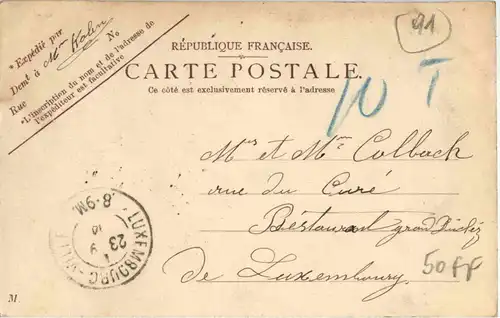 * Expédié par Mme Kolin
Demt à N°
Rue
*L'inscription du nom et de l'adresse de
l'expéditeur est facultative
91
RÉPUBLIQUE FRANÇAISE.
CARTE POSTALE.
Ce côté est exclusivement réservé à l'adresse
T
Mrs et Mme Colbach
rue du Curé
Réstaurant grand Duché
de Luxembourg.
LUXEMBOURG-VILLE
8-9M
23
9
50 FF
M.